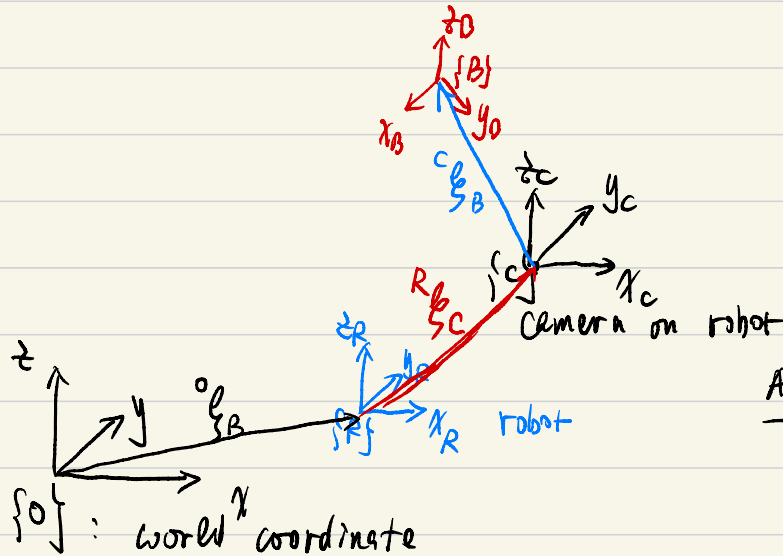 z_B
{B}
x_B
y_B
^Cξ_B
z_C
y_C
{C}
x_C
camera on robot
^Rξ_C
z_R
y_R
{R}
x_R
robot
z
y
^0ξ_B
x
{0} : world coordinate
A